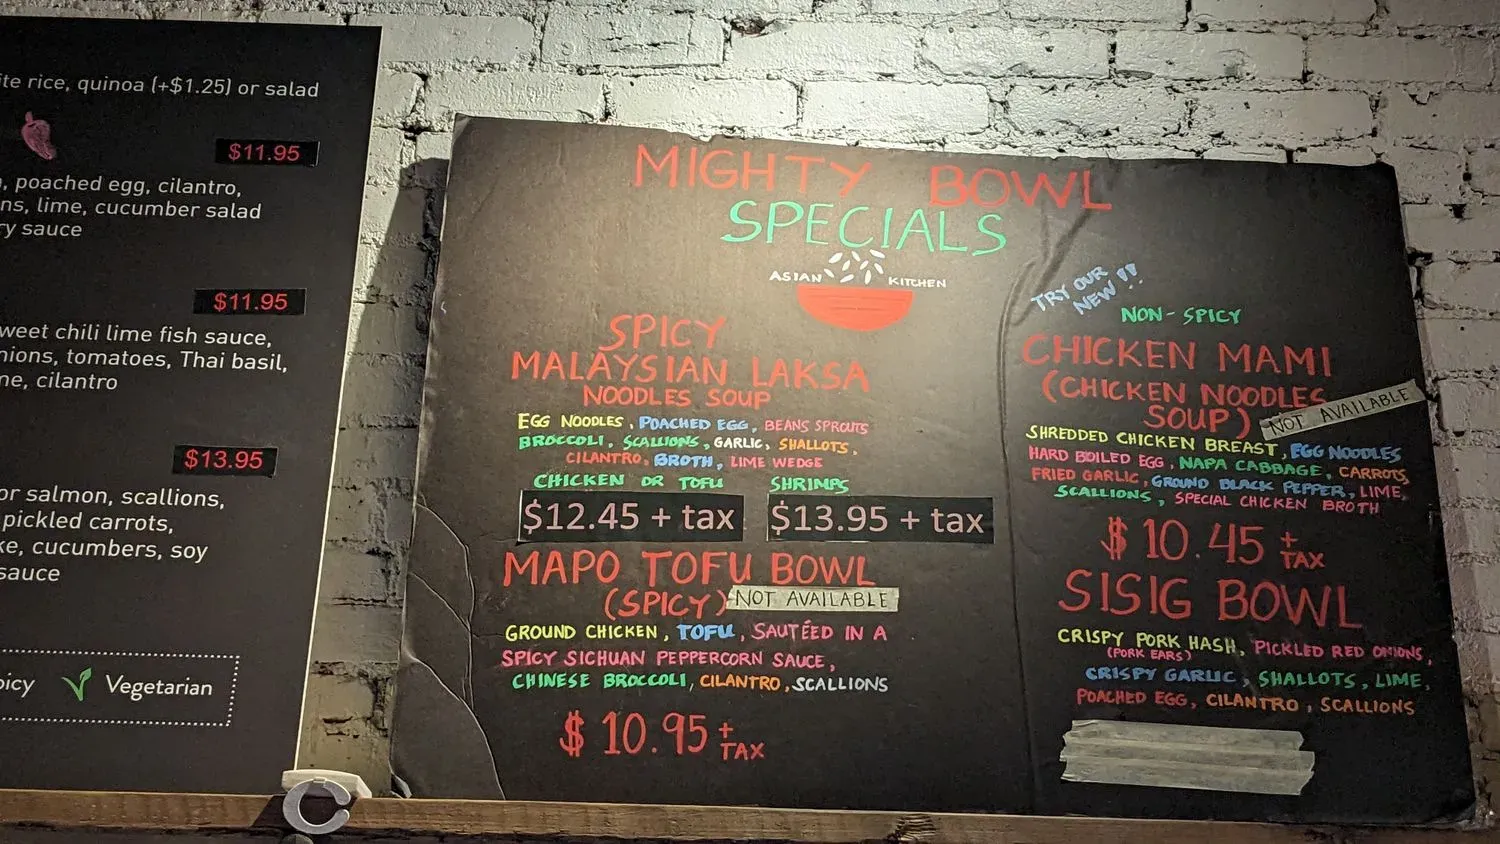 rice, quinoa (+$1.25) or salad
$11.95
poached egg, cilantro,
lime, cucumber salad
sauce
$11.95
sweet chili lime fish sauce,
onions, tomatoes, Thai basil,
cilantro
$13.95
or salmon, scallions,
pickled carrots,
cucumbers, soy
sauce
Vegetarian
MIGHTY BOWL
SPECIALS
ASIAN KITCHEN
SPICY
MALAYSIAN LAKSA
NOODLES SOUP
EGG NOODLES, POACHED EGG, BEANS SPROUTS
BROCCOLI, SCALLIONS, GARLIC, SHALLOTS,
CILANTRO, BROTH, LIME WEDGE
CHICKEN OR TOFU SHRIMPS
$12.45 + tax $13.95 + tax
MAPO TOFU BOWL
(SPICY) NOT AVAILABLE
GROUND CHICKEN, TOFU, SAUTÉED IN A
SPICY SICHUAN PEPPERCORN SAUCE,
CHINESE BROCCOLI, CILANTRO, SCALLIONS
$ 10.95 + TAX
TRY OUR
NEW!!
NON-SPICY
CHICKEN MAMI
(CHICKEN NOODLES
SOUP) NOT AVAILABLE
SHREDDED CHICKEN BREAST, EGG NOODLES
HARD BOILED EGG, NAPA CABBAGE, CARROTS,
FRIED GARLIC, GROUND BLACK PEPPER, LIME,
SCALLIONS, SPECIAL CHICKEN BROTH
$ 10.45 + TAX
SISIG BOWL
CRISPY PORK HASH, PICKLED RED ONIONS,
(PORK EARS)
CRISPY GARLIC, SHALLOTS, LIME,
POACHED EGG, CILANTRO, SCALLIONS